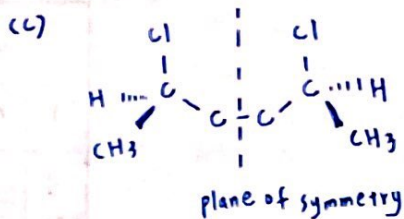 (c)
Cl Cl
H C C H
CH3 C C CH3
plane of symmetry